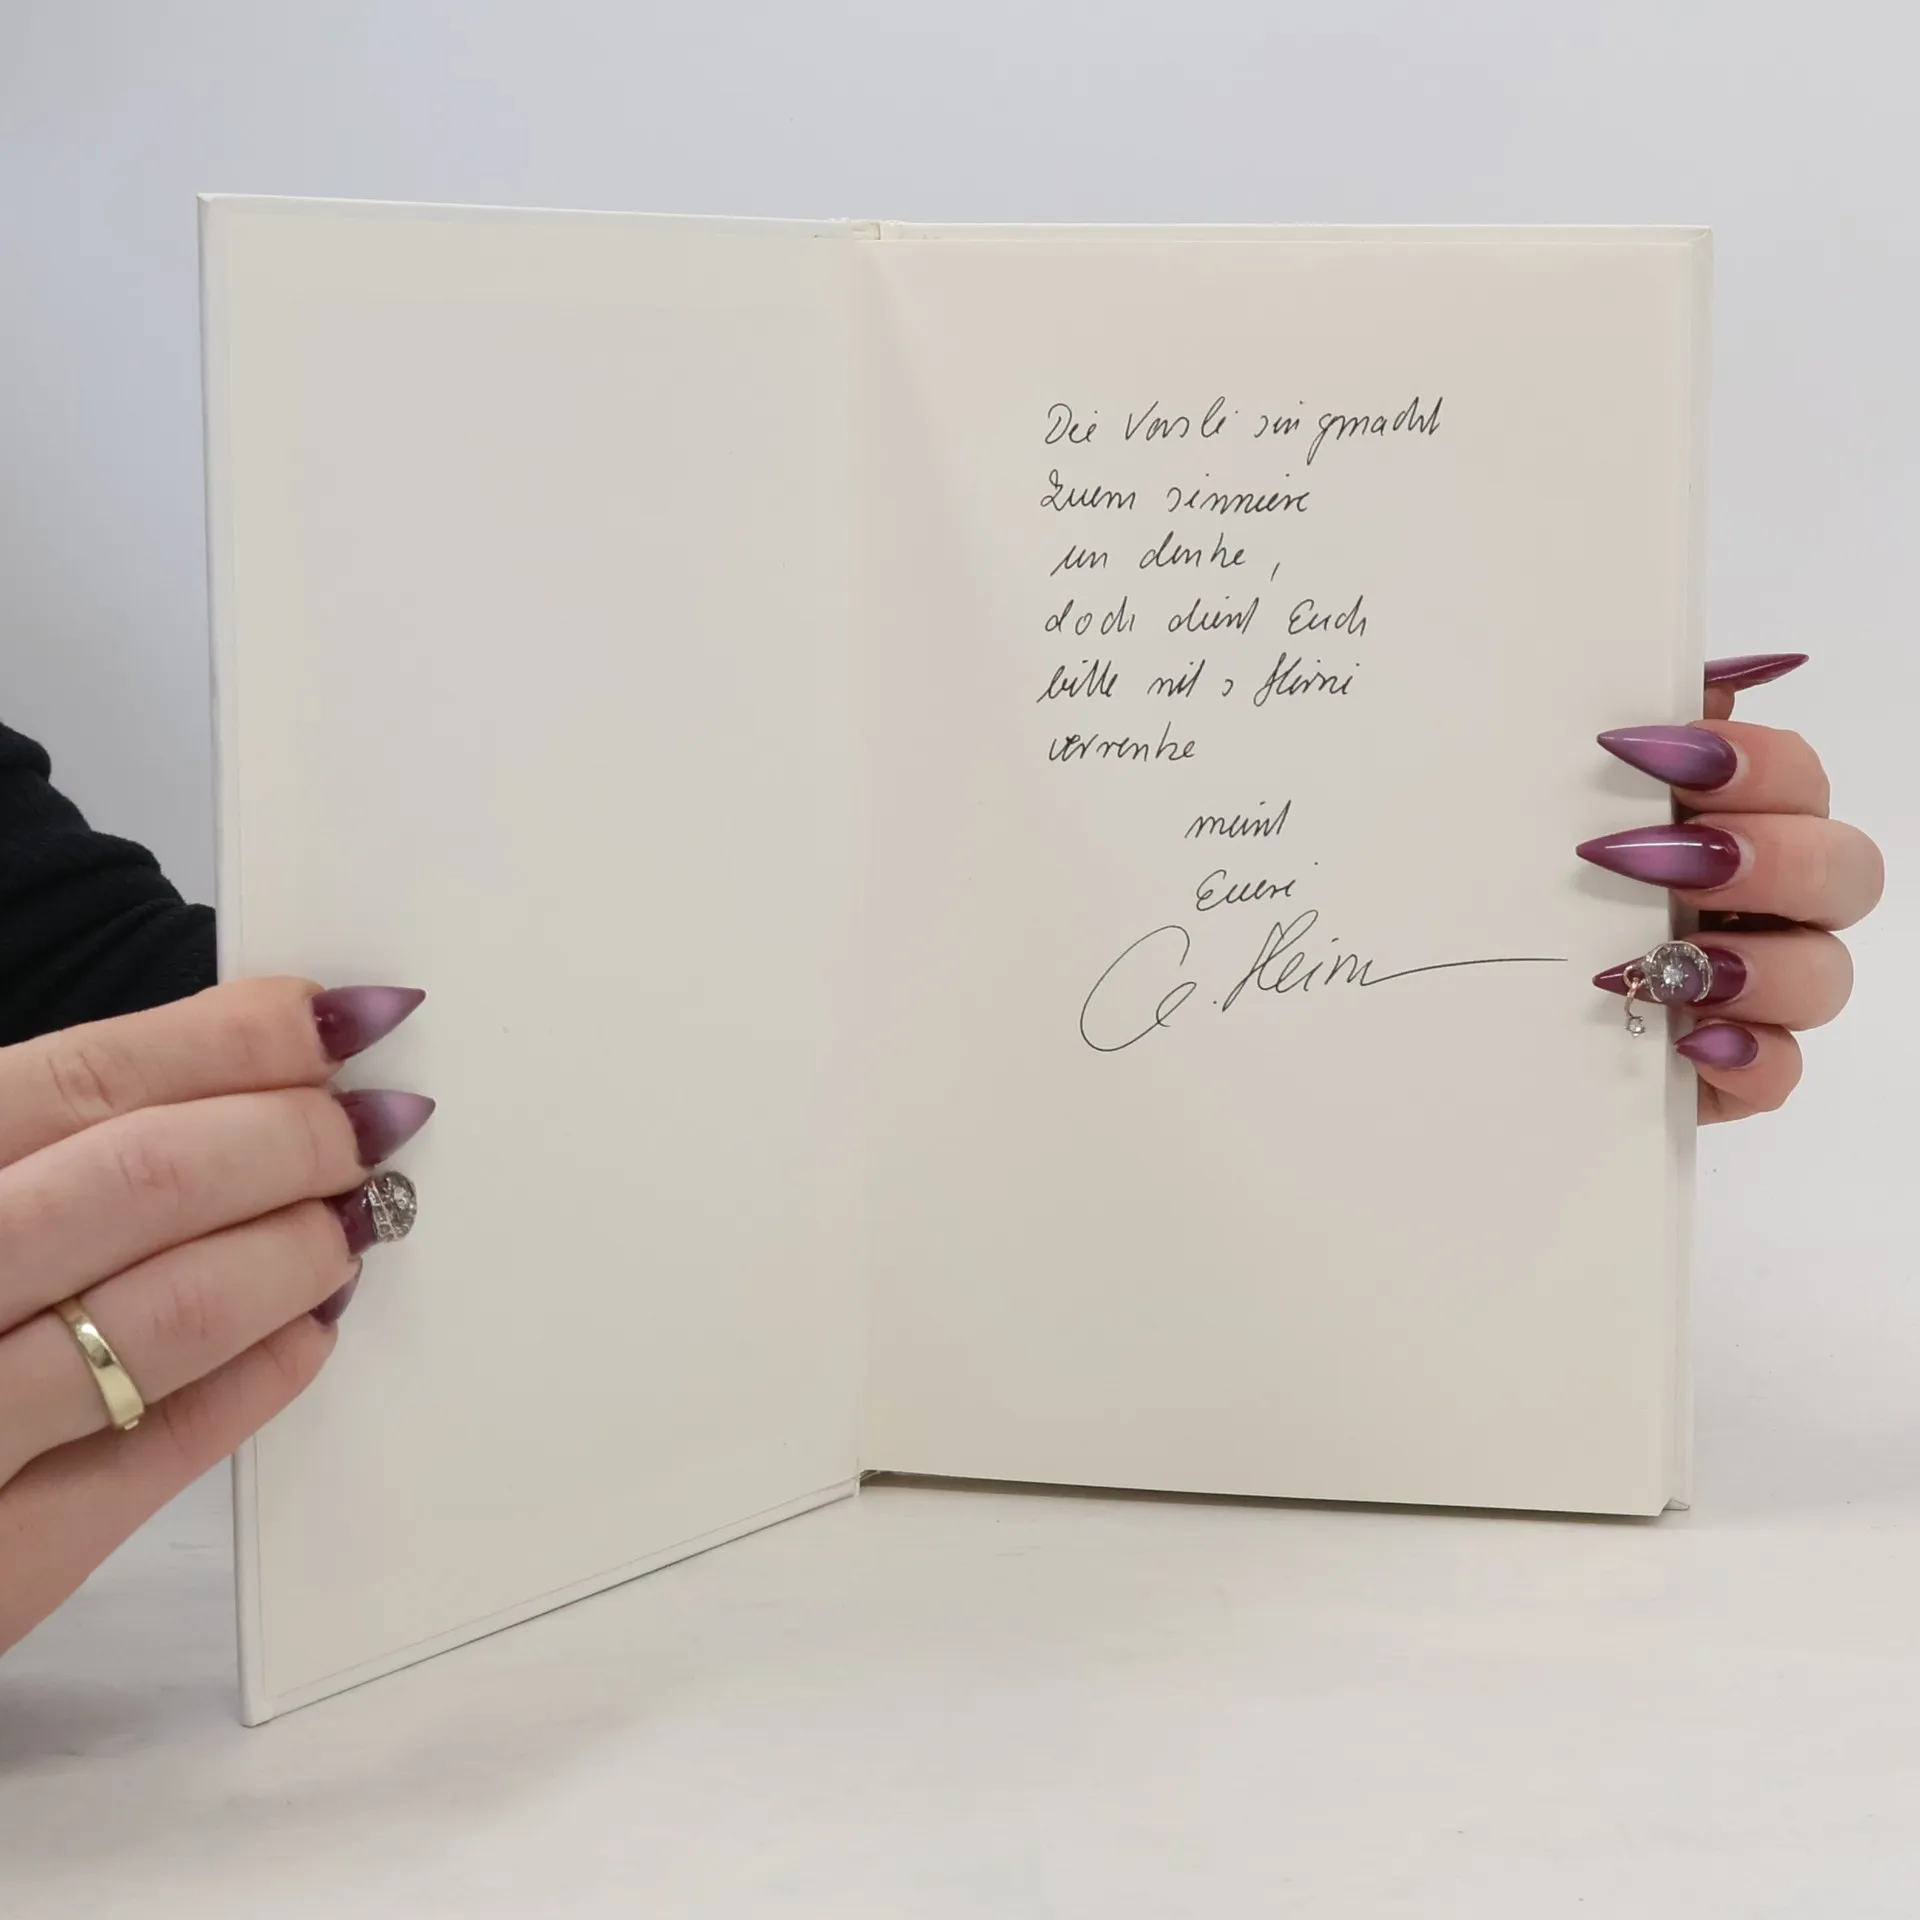 Die Versli sin gmacht
zuem sinniere
un denke,
doch dient Euch
bitte nit s Hirni
verrenke
meint
Eueri
G. Heim